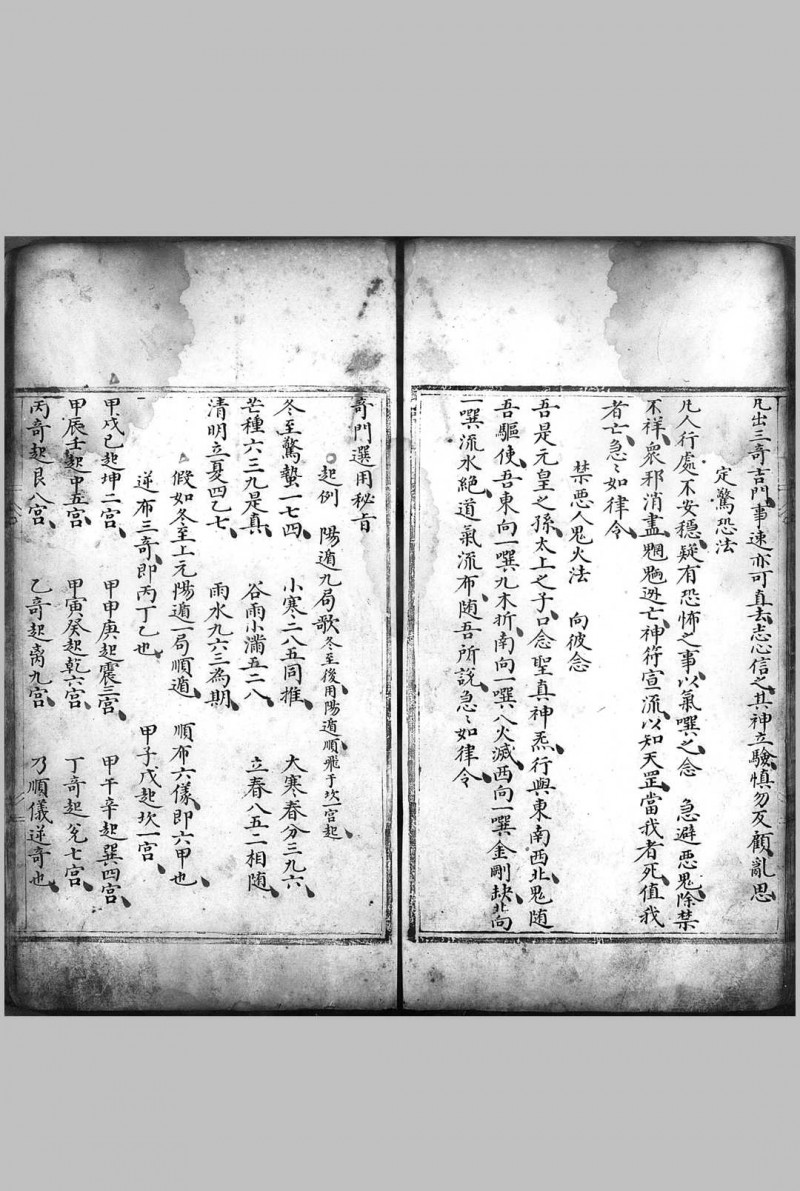 凡出三奇吉門事速亦可直去志心信之其神立驗慎勿反顧亂思
定驚恐法
凡人行處不安穩疑有恐怖之事以氣噀之念　急避悪鬼除禁
不祥衆邪消盡魍魎迯亡神符宣流以知天罡當我者死值我
者亡急〻如律令
禁悪人鬼火法　向彼念
吾是元皇之孫太上之子口念聖真神炁行與東南西北鬼随
吾驅使吾東向一噀九木折南向一噀八火滅西向一噀金剛缺北向
一噀流水絕道氣流布随吾所說急〻如律令
奇門選用秘旨
起例　陽遁九局歌冬至後用陽遁順飛于坎一宮起
冬至驚蟄一七四　小寒二八五同推　大寒春分三九六
芒種六三九是真　谷雨小滿五二八　立春八五二相随
清明立夏四乙七　雨水九六三為期
假如冬至上元陽遁一局順遁　順布六儀即六甲也
逆布三奇即丙丁乙也　甲子戊起坎一宮
甲戌己起坤二宮　甲申庚起震三宮　甲午辛起巽四宮
甲辰壬起中五宮　甲寅癸起乾六宮　丁奇起兌七宮
丙奇起艮八宮　乙奇起离九宮　乃順儀逆奇也